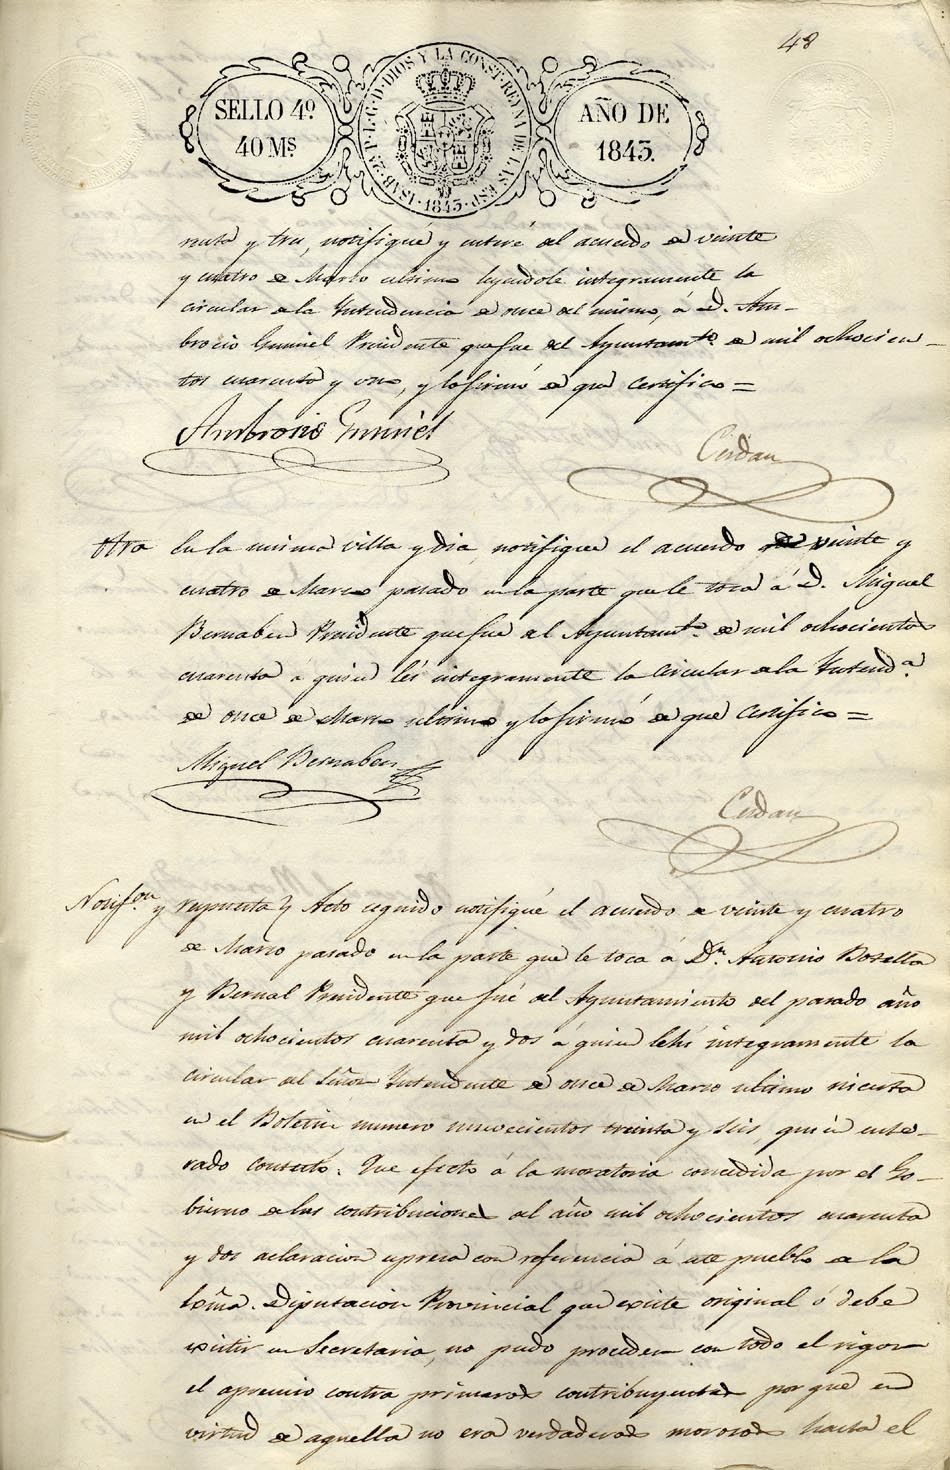 48
SELLO 4º.
40 Mˢ
ISAB. 2ª. P. L. G. D. DIOS Y LA CONST. REYNA DE LAS ESP.
1843.
AÑO DE
1843.
renta y tres, notifiqué y enteré del acuerdo de veinte
y cuatro de Marzo ultimo leyendole integramente la
circular de la Yntendencia de once del mismo, á D. Am-
brocio Gumiel Presidente que fue del Ayuntamtº. de mil ochocien-
tos cuarenta y uno, y lo firmó de que certifico =
Ambrosio Gumiel
Cerdan
Otra En la misma villa y dia, notifique el acuerdo de veinte y
cuatro de Marzo pasado en la parte que le toca á D. Miguel
Bernabeu Presidente que fue del Ayuntamtº. de mil ochocientos
cuarenta á quien leí integramente la circular de la Yntendª.
de once de Marzo ultimo y lo firmó de que certifico =
Miguel Bernabeu
Cerdan
Notifon. y respuesta Y Acto seguido notifiqué el acuerdo de veinte y cuatro
de Marzo pasado en la parte que le toca á Dn. Antonio Botella
y Bernal Presidente que fué del Ayuntamiento del pasado año
mil ochocientos cuarenta y dos á quien lehí integramente la
circular del Señor Yntendente de once de Marzo ultimo incerta
en el Boletin numero novecientos treinta y seis, quien ente-
rado contestó: Que efecto á la moratoria concedida por el Go-
bierno de las contribuciones del año mil ochocientos cuarenta
y dos aclaracion espresa con referencia á este pueblo de la
Exma. Diputacion Provincial que existe original ó debe
existir en Secretaria, no pudo proceder con todo el rigor
el apremio contra primeros contribuyentes porque en
virtud de aquella no era verdaderos morosos hasta el